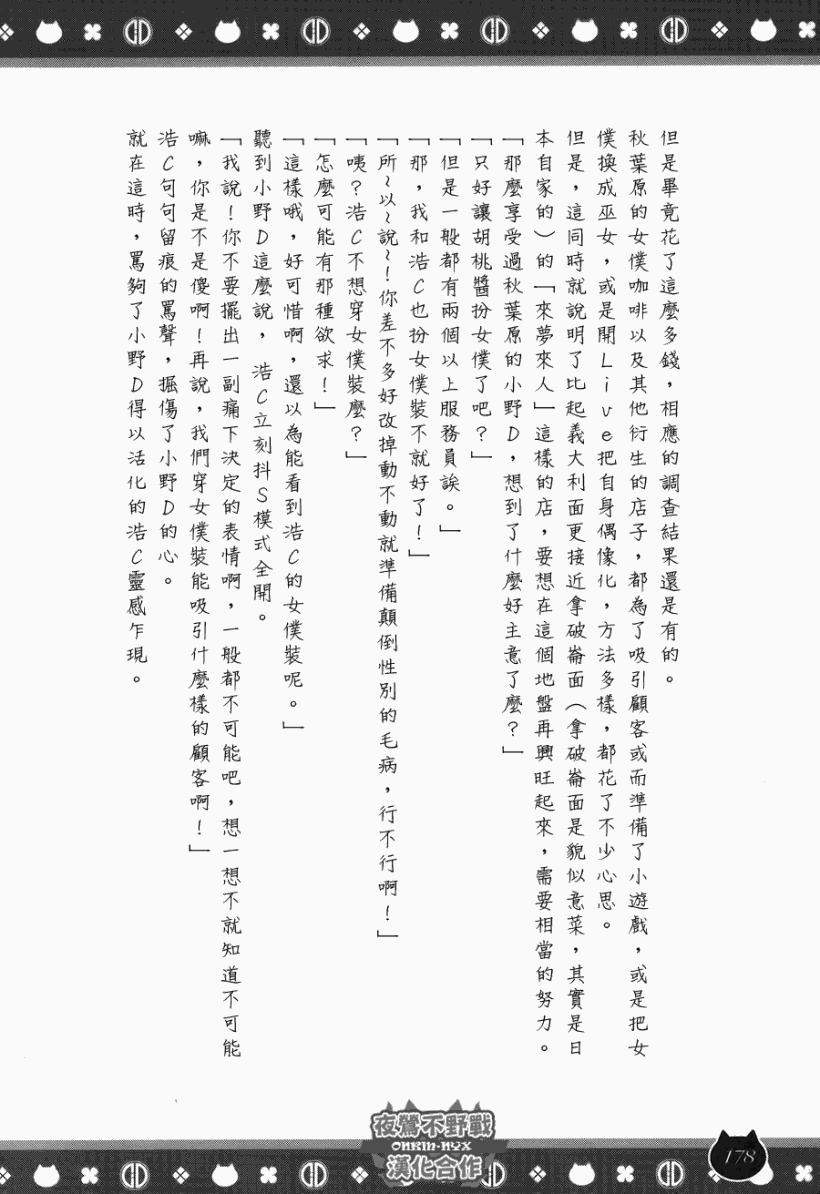 但是畢竟花了這麼多錢，相應的調查結果還是有的。
秋葉原的女僕咖啡以及其他衍生的店子，都為了吸引顧客或而準備了小遊戲，或是把女
僕換成巫女，或是開Live把自身偶像化，方法多樣，都花了不少心思。
但是，這同時就說明了比起義大利面更接近拿破崙面（拿破崙面是貌似意菜，其實是日
本自家的）的「來夢來人」這樣的店，要想在這個地盤再興旺起來，需要相當的努力。
「那麼享受過秋葉原的小野D，想到了什麼好主意了麼？」
「只好讓胡桃醬扮女僕了吧？」
「但是一般都有兩個以上服務員誒。」
「那，我和浩C也扮女僕裝不就好了！」
「所~以~說~！你差不多好改掉動不動就準備顛倒性別的毛病，行不行啊！」
「咦？浩C不想穿女僕裝麼？」
「怎麼可能有那種欲求！」
「這樣哦，好可惜啊，還以為能看到浩C的女僕裝呢。」
聽到小野D這麼說，浩C立刻抖S模式全開。
「我說！你不要擺出一副痛下決定的表情啊，一般都不可能吧，想一想不就知道不可能
嘛，你是不是傻啊！再說，我們穿女僕裝能吸引什麼樣的顧客啊！」
浩C句句留痕的罵聲，掘傷了小野D的心。
就在這時，罵夠了小野D得以活化的浩C靈感乍現。
夜鶯不野戰
ONKIN·NYX
漢化合作
178